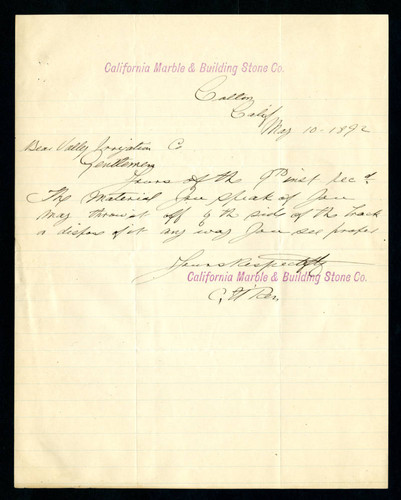 California Marble & Building Stone Co.
Colton
Calif
May 10 - 1892
Bear Vally Irrigation Co
Gentlemen
Yours of the 9th inst rec'd.
The Material you speak of you
may throw it off by the side of the track
& dispose of it any way you see proper
Yours Respectfully
California Marble & Building Stone Co.